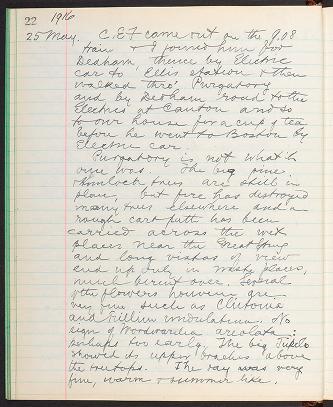 22 1916
25 May. C.E.F. came out on the 9.08
train & I joined him for
Dedham, thence by Electric
car to Ellis station & then
walked thro' Purgatory
and by Dedham road to the
Electric at Canton and so
to our house for a cup of tea
before he went to Boston by
Electric car.
Purgatory is not what it
once was. The big pine
Hemlock trees are still in
place, but fire has destroyed
many trees elsewhere and a
rough cart path has been
carried across the wet
places near the Great Spring
and long vistas of view
end up only in waste places,
much burnt over. Several
of the flowers however are
very fine such as Clintonia
and Trillium undulatum. No
sign of Woodwardia areolata:
perhaps too early. The big Tupelo
showed its upper branches above
the treetops. The day was very
fine, warm & summer like.